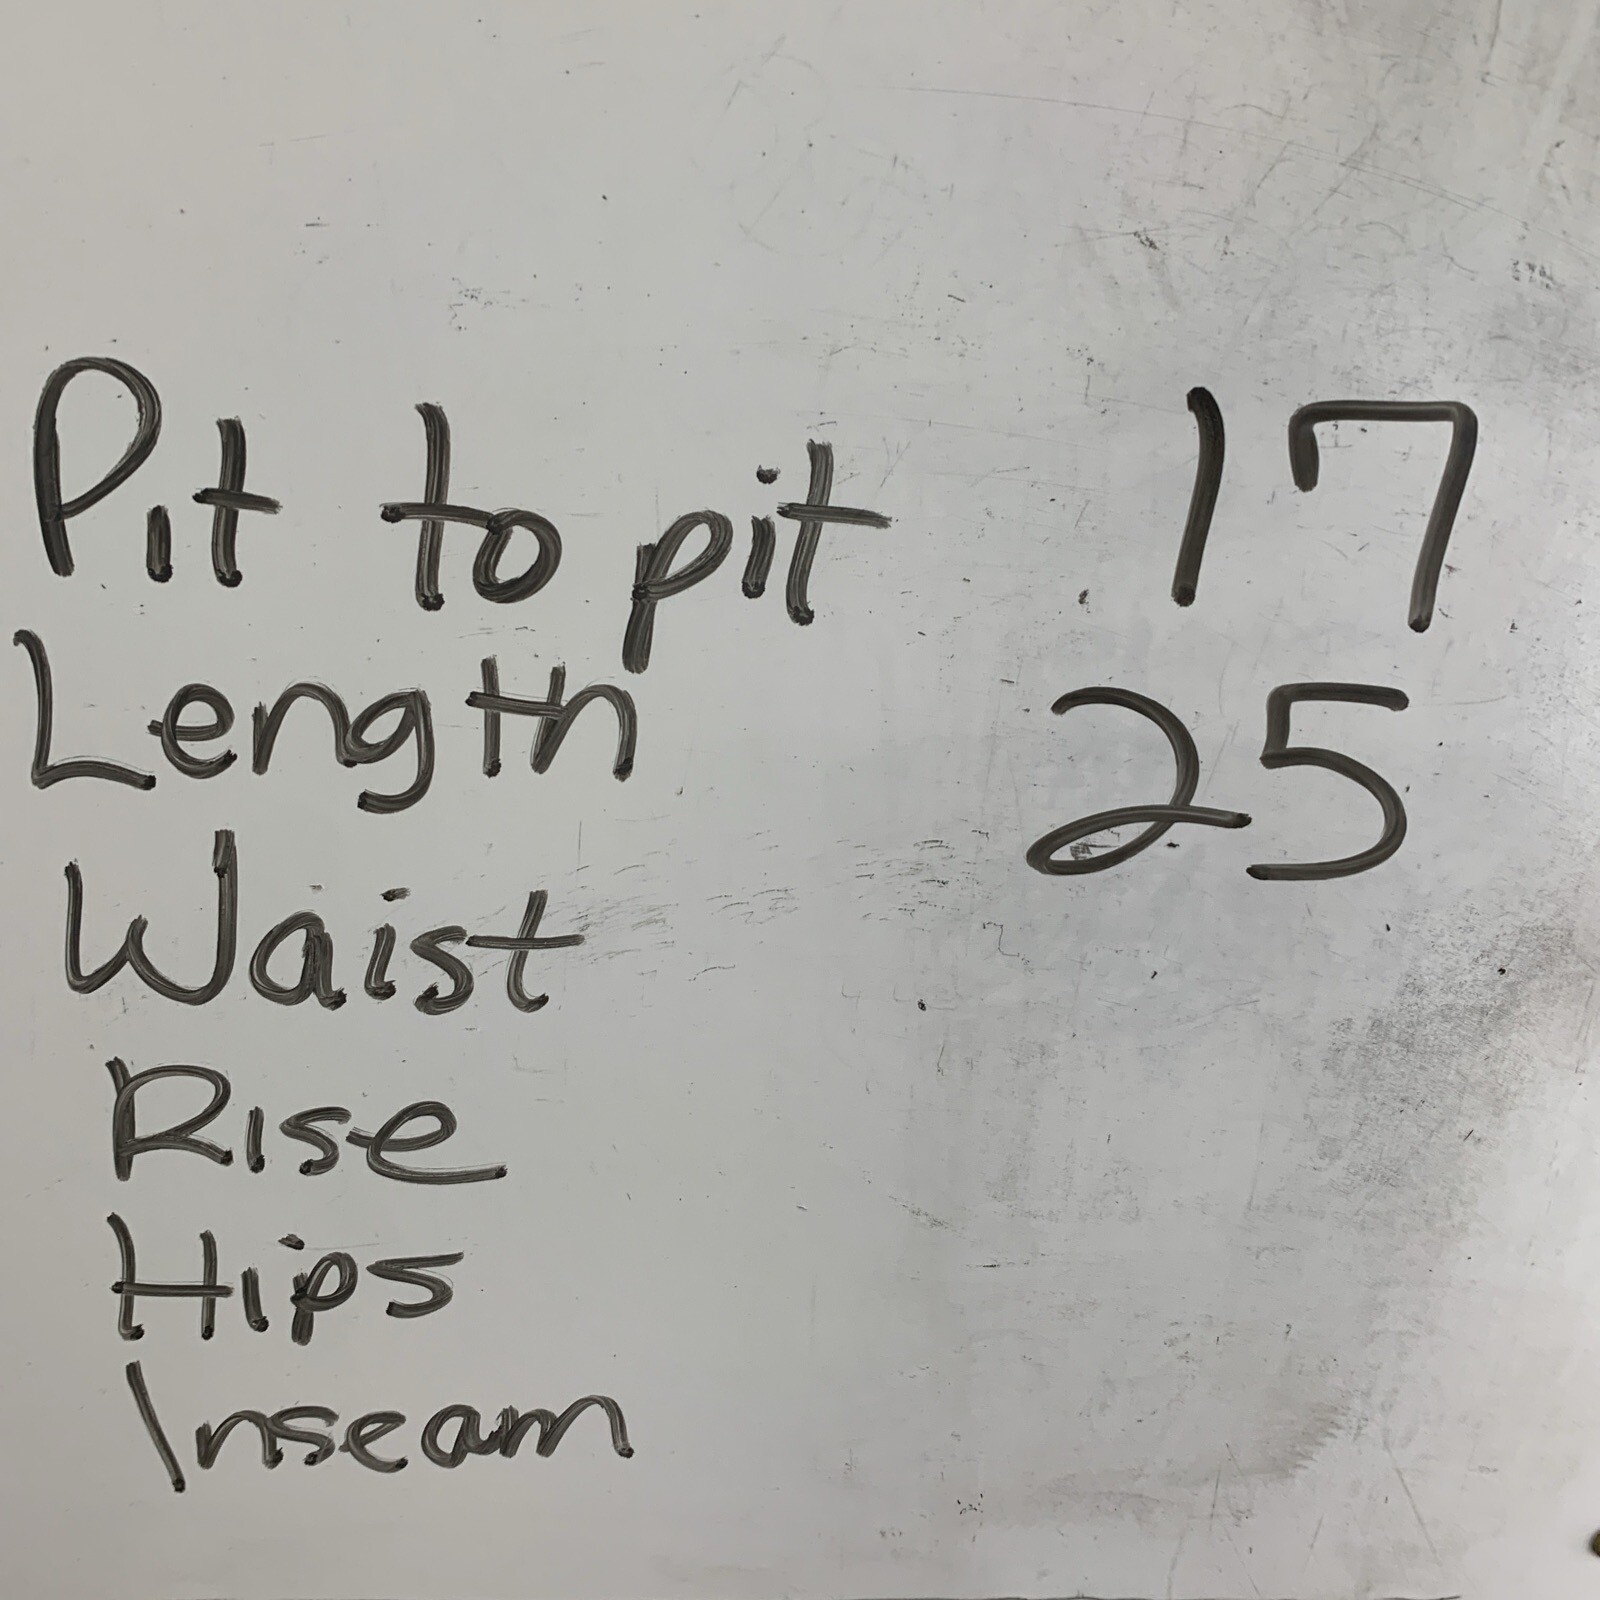 Pit to pit 17
Length 25
Waist
Rise
Hips
Inseam